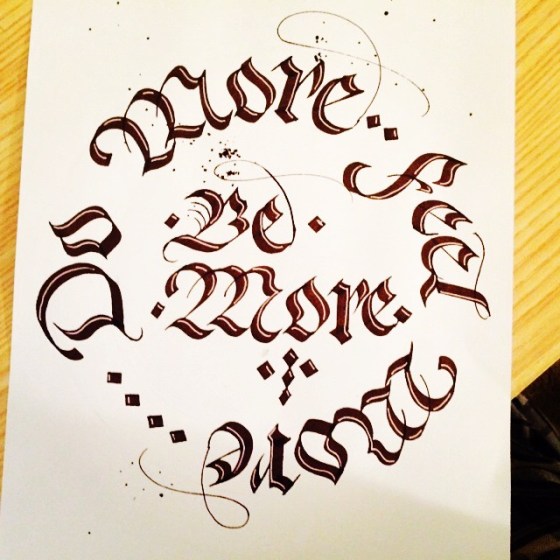 Do More. Feel More.
Be
More.